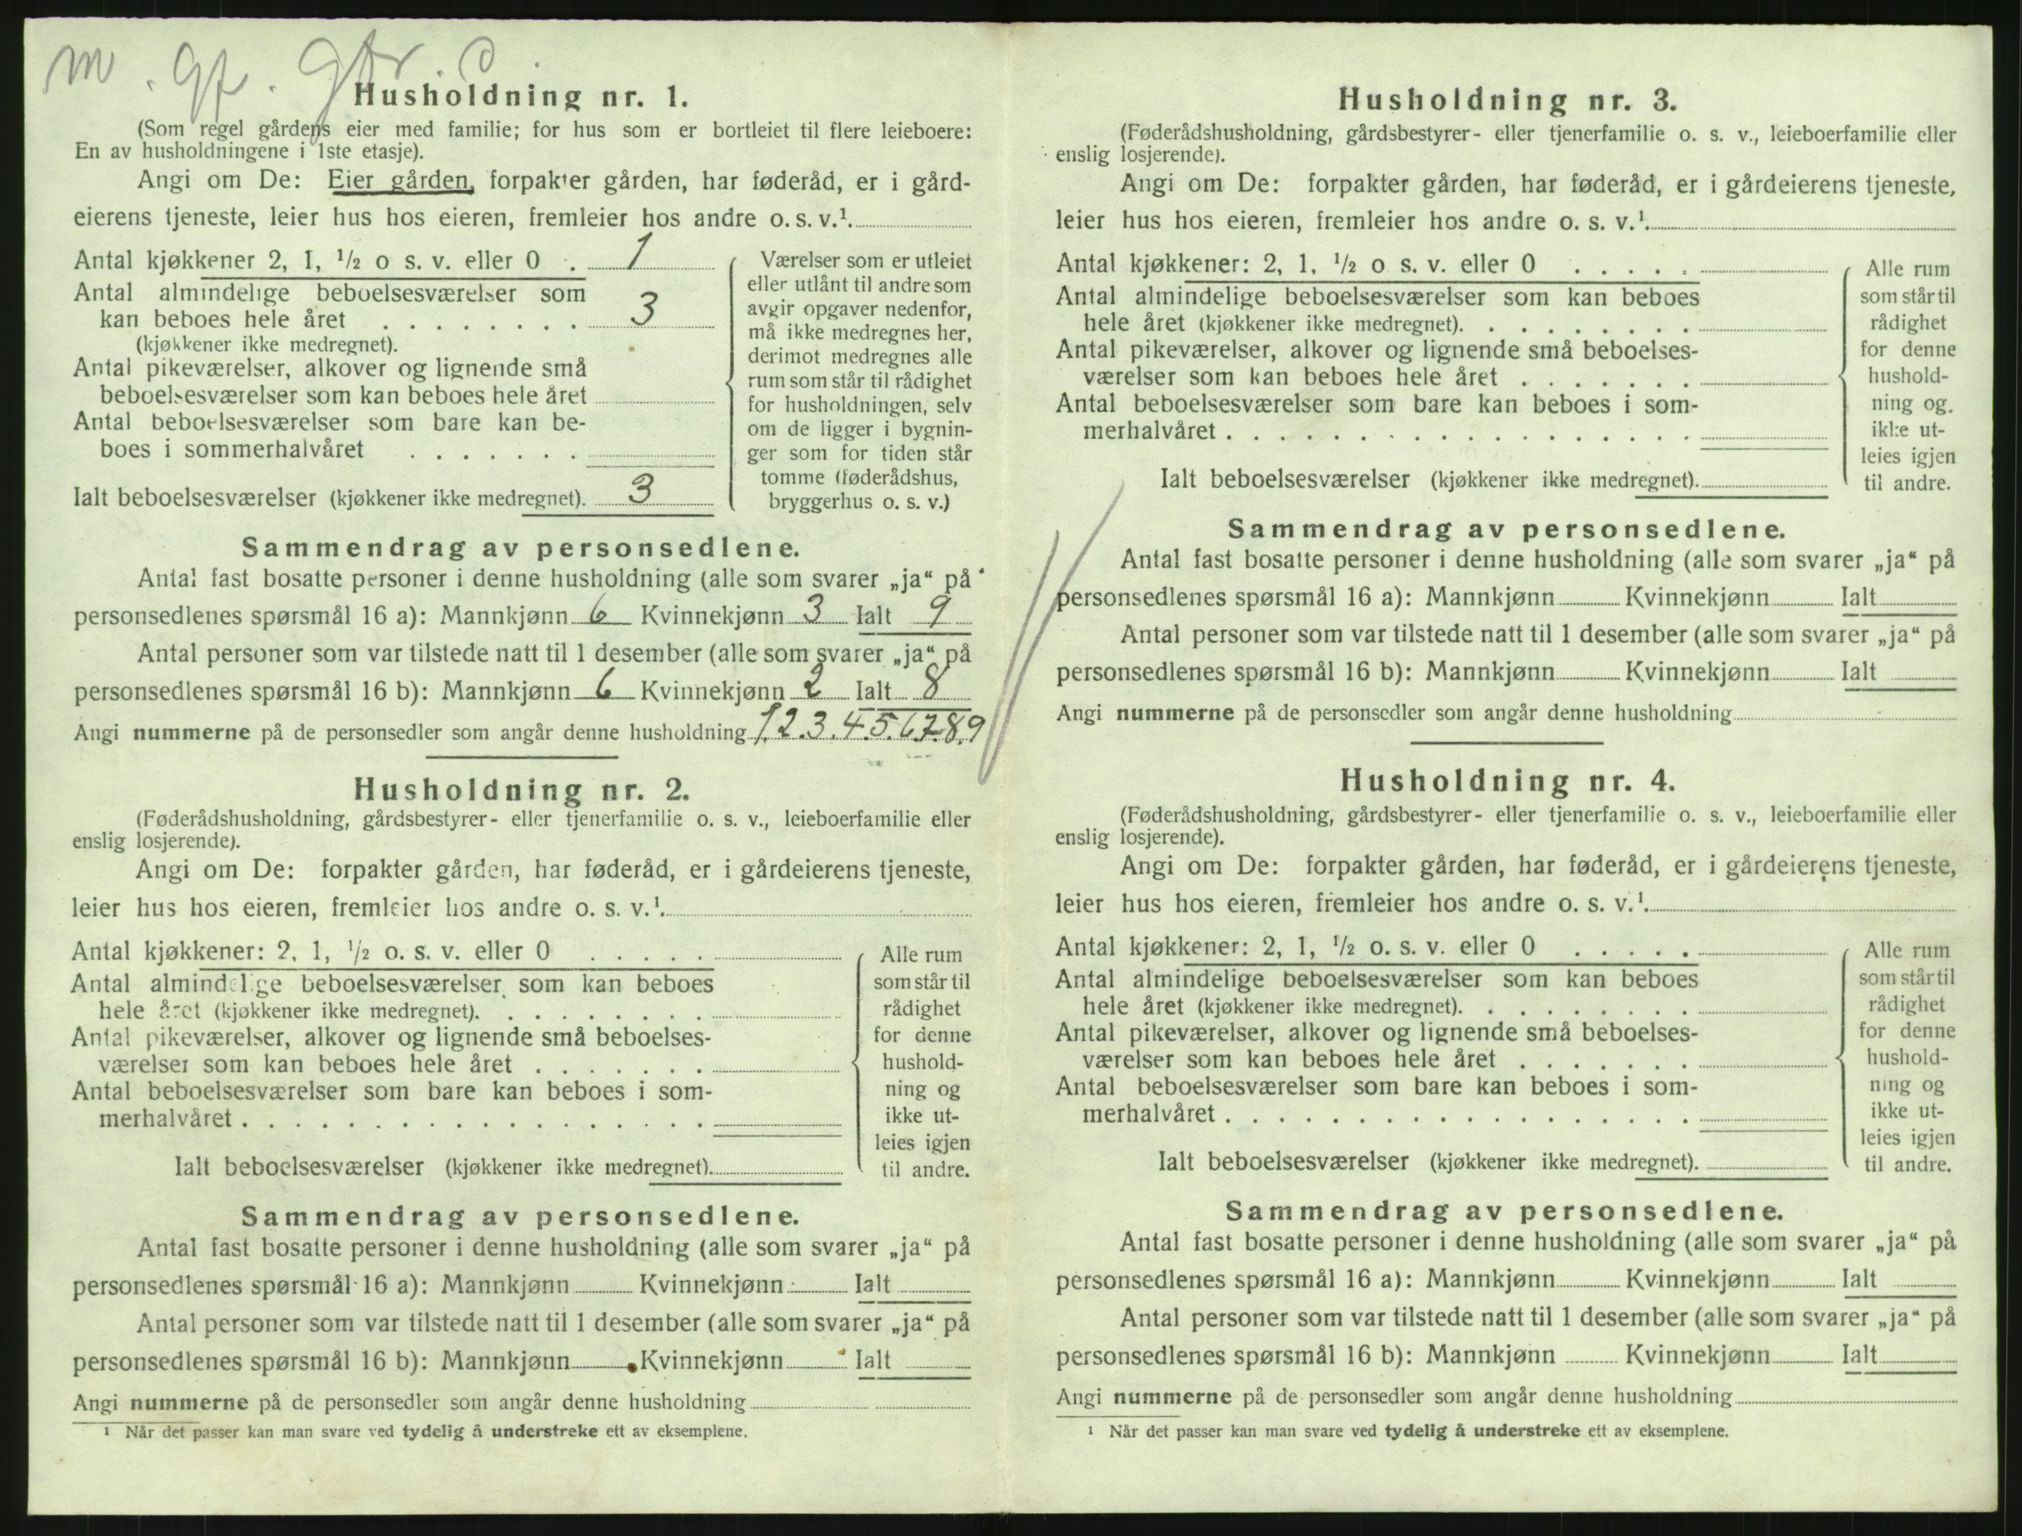 m. gf. gbr. c
Husholdning nr. 1.
(Som regel gårdens eier med familie; for hus som er bortleiet til flere leieboere:
En av husholdningene i 1ste etasje).
Angi om De: Eier gården, forpakter gården, har føderåd, er i gård-
eierens tjeneste, leier hus hos eieren, fremleier hos andre o. s. v.¹.
Antal kjøkkener 2, 1, ½ o s. v. eller 0 . 1
Antal almindelige beboelsesværelser som
kan beboes hele året . . . . . . . . 3
(kjøkkener ikke medregnet).
Antal pikeværelser, alkover og lignende små
beboelsesværelser som kan beboes hele året
Antal beboelsesværelser som bare kan be-
boes i sommerhalvåret . . . . . . .
Ialt beboelsesværelser (kjøkkener ikke medregnet). 3
Værelser som er utleiet
eller utlånt til andre som
avgir opgaver nedenfor,
må ikke medregnes her,
derimot medregnes alle
rum som står til rådighet
for husholdningen, selv
om de ligger i bygnin-
ger som for tiden står
tomme (føderådshus,
bryggerhus o. s. v.)
Sammendrag av personsedlene.
Antal fast bosatte personer i denne husholdning (alle som svarer „ja“ på
personsedlenes spørsmål 16 a): Mannkjønn 6 Kvinnekjønn 3 Ialt 9
Antal personer som var tilstede natt til 1 desember (alle som svarer „ja“ på
personsedlenes spørsmål 16 b): Mannkjønn 6 Kvinnekjønn 2 Ialt 8
Angi nummerne på de personsedler som angår denne husholdning 1.2.3.4.5.6.7.8.9
Husholdning nr. 2.
(Føderådshusholdning, gårdsbestyrer- eller tjenerfamilie o. s. v., leieboerfamilie eller
enslig losjerende).
Angi om De: forpakter gården, har føderåd, er i gårdeierens tjeneste,
leier hus hos eieren, fremleier hos andre o. s. v.¹.
Antal kjøkkener: 2, 1, ½ o. s. v. eller 0 . . . . .
Antal almindelige beboelsesværelser som kan beboes
hele året (kjøkkener ikke medregnet). . . . . . . . .
Antal pikeværelser, alkover og lignende små beboelses-
værelser som kan beboes hele året . . . . . . .
Antal beboelsesværelser som bare kan beboes i som-
merhalvåret . . . . . . . . . . . . . . . . . .
Ialt beboelsesværelser (kjøkkener ikke medregnet).
Alle rum
som står til
rådighet
for denne
hushold-
ning og
ikke ut-
leies igjen
til andre.
Sammendrag av personsedlene.
Antal fast bosatte personer i denne husholdning (alle som svarer „ja“ på
personsedlenes spørsmål 16 a): Mannkjønn Kvinnekjønn Ialt
Antal personer som var tilstede natt til 1 desember (alle som svarer „ja“ på
personsedlenes spørsmål 16 b): Mannkjønn Kvinnekjønn Ialt
Angi nummerne på de personsedler som angår denne husholdning
¹ Når det passer kan man svare ved tydelig å understreke ett av eksemplene.
Husholdning nr. 3.
(Føderådshusholdning, gårdsbestyrer- eller tjenerfamilie o. s. v., leieboerfamilie eller
enslig losjerende).
Angi om De: forpakter gården, har føderåd, er i gårdeierens tjeneste,
leier hus hos eieren, fremleier hos andre o. s. v.¹.
Antal kjøkkener: 2, 1, ½ o s. v. eller 0 . . . . .
Antal almindelige beboelsesværelser som kan beboes
hele året (kjøkkener ikke medregnet). . . . . . . . .
Antal pikeværelser, alkover og lignende små beboelses-
værelser som kan beboes hele året . . . . . . .
Antal beboelsesværelser som bare kan beboes i som-
merhalvåret . . . . . . . . . . . . . . . . . .
Ialt beboelsesværelser (kjøkkener ikke medregnet).
Alle rum
som står til
rådighet
for denne
hushold-
ning og
ikke ut-
leies igjen
til andre.
Sammendrag av personsedlene.
Antal fast bosatte personer i denne husholdning (alle som svarer „ja“ på
personsedlenes spørsmål 16 a): Mannkjønn Kvinnekjønn Ialt
Antal personer som var tilstede natt til 1 desember (alle som svarer „ja“ på
personsedlenes spørsmål 16 b): Mannkjønn Kvinnekjønn Ialt
Angi nummerne på de personsedler som angår denne husholdning
Husholdning nr. 4.
(Føderådshusholdning, gårdsbestyrer- eller tjenerfamilie o. s. v., leieboerfamilie eller
enslig losjerende).
Angi om De: forpakter gården, har føderåd, er i gårdeierens tjeneste,
leier hus hos eieren, fremleier hos andre o. s. v.¹.
Antal kjøkkener: 2, 1, ½ o. s. v. eller 0 . . . . .
Antal almindelige beboelsesværelser som kan beboes
hele året (kjøkkener ikke medregnet). . . . . . . . .
Antal pikeværelser, alkover og lignende små beboelses-
værelser som kan beboes hele året . . . . . . .
Antal beboelsesværelser som bare kan beboes i som-
merhalvåret . . . . . . . . . . . . . . . . . .
Ialt beboelsesværelser (kjøkkener ikke medregnet).
Alle rum
som står til
rådighet
for denne
hushold-
ning og
ikke ut-
leies igjen
til andre.
Sammendrag av personsedlene.
Antal fast bosatte personer i denne husholdning (alle som svarer „ja“ på
personsedlenes spørsmål 16 a): Mannkjønn Kvinnekjønn Ialt
Antal personer som var tilstede natt til 1 desember (alle som svarer „ja“ på
personsedlenes spørsmål 16 b): Mannkjønn Kvinnekjønn Ialt
Angi nummerne på de personsedler som angår denne husholdning
¹ Når det passer kan man svare ved tydelig å understreke ett av eksemplene.